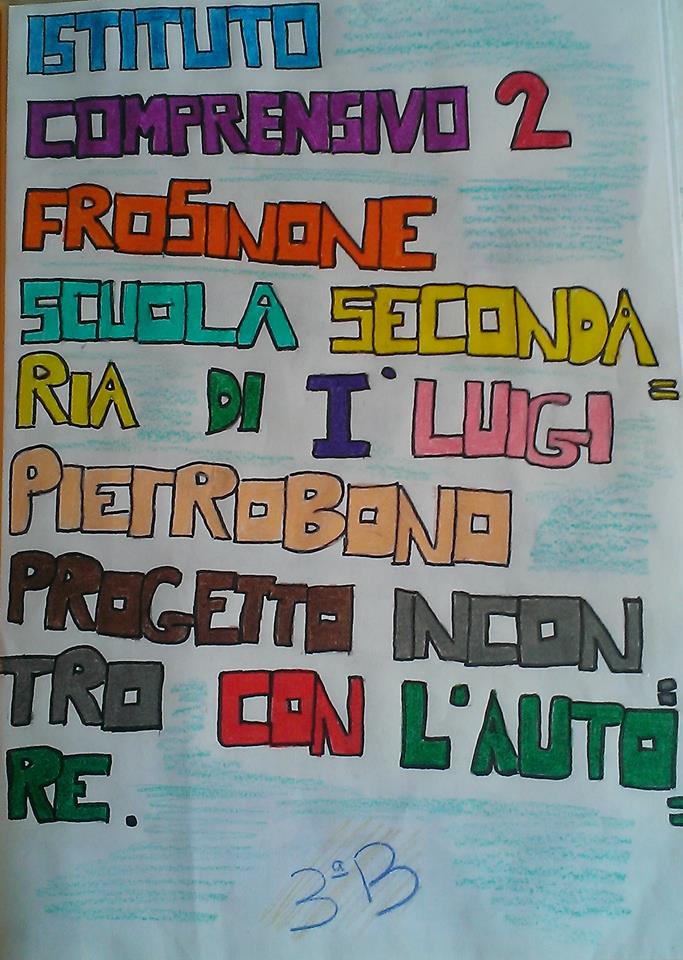 ISTITUTO
COMPRENSIVO 2
FROSINONE
SCUOLA SECONDA=
RIA DI I° LUIGI
PIETROBONO
PROGETTO INCON=
TRO CON L'AUTO=
RE.
3ª B